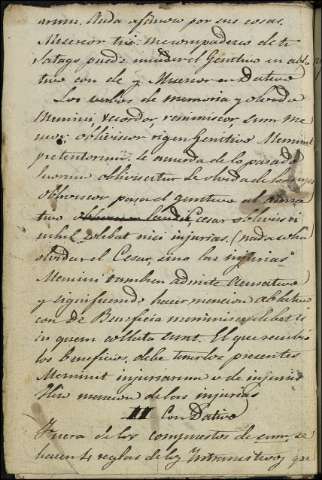 por sus cosas.
Misereor tui me compadezco de ti
Satago, puede mudar el Genitivo en abla
tivo con de y Misereor en Dativo
Los verbos de memoria y olvido
Memini, recordor, reminiscor, sum me
mor, obliviscor rigen Genitivo Meminit
preteritorum se acuerda de lo pasado
obliviscitur se olvida de las
Obliviscor, pasa el genitivo al acusa
tivo Cesar oblivisci
nihil solebat nisi injurias. (nada solia
olvidar el Cesar, sino las injurias
Memini tambien admite Acusativo
y significando hacer mencion ablativo
con de Beneficia meminisse debet is
in quem collata sunt. El que recibe
los beneficios, debe tenerlos presentes
Meminit injuriarum u de injuriis
Hizo mencion de las injurias
II Con Dativo
Fuera de los compuestos de sum, se
hacen 4 reglas de los Intransitivos, que